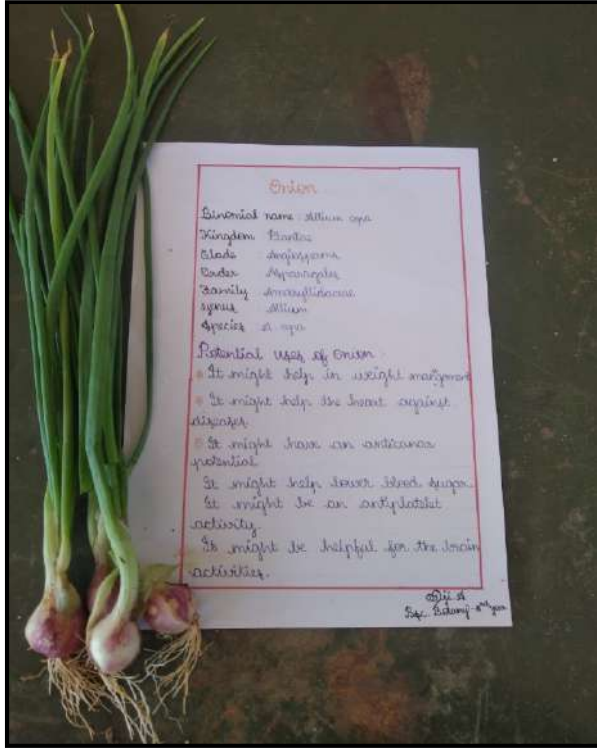 Onion
Binomial name : Allium cepa
Kingdom Plantae
Clade : Angiosperms
Order : Asparagales
Family : Amaryllidaceae
genus : Allium
Species : A. cepa
Potential uses of Onion :
It might help in weight mangement
It might help the heart against
diseases.
It might have an anticancer
potential
It might help lower blood sugar.
It might be an antiplatelet
activity.
It might be helpful for the brain
activities.
A
Bsc. Botany - year